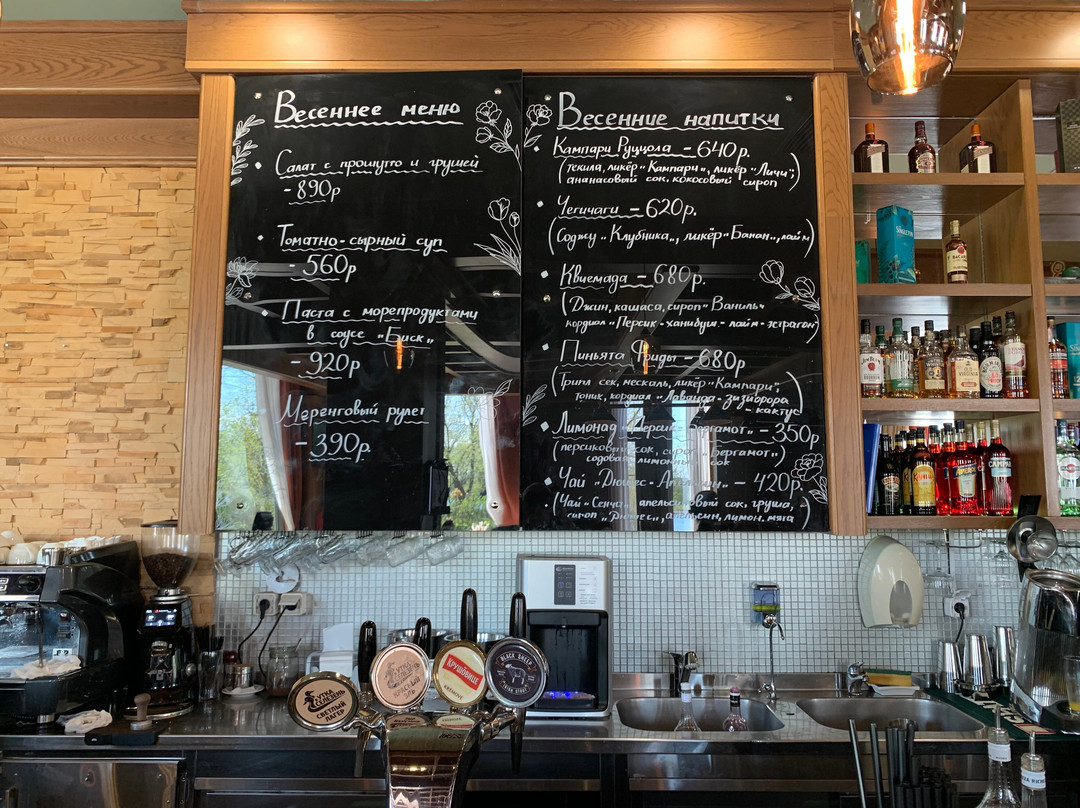 Весеннее меню
Салат с прошутто и грушей
- 890р
Томатно-сырный суп
- 560р
Паста с морепродуктами
в соусе „Биск"
- 920р
Меренговый рулет
- 390р.
Весенние напитки
Кампари Руццола - 640р.
(текила, ликёр „Кампари", ликёр "Личи";
ананасовый сок, кокосовый сироп)
Чегичаги - 620р.
(Соджу „Клубника", ликёр „Банан", лайм)
Квиемада - 680р.
(Джин, кашаса, сироп "Ваниль"
кордиал "Персик-ханибуш-лайм-эстрагон")
Пиньята Фриды - 680р
(Трипл сек, мескаль, ликёр "Кампари";
тоник, кордиал "Лаванда-зизифора
- кактус")
Лимонад „Персик-Бергамот" - 350р
(персиковый сок, сироп „Бергамот"
содовая, лимонный сок)
Чай "Дюшес-Апельсин" - 420р.
(Чай "Сенча", апельсиновый сок, груша,
сироп „Дюшес", апельсин, лимон, мята)
СВЕТЛЫЙ ЛАГЕР
КРУШОВИЦЕ
BLACK SHEEP
CAMPARI